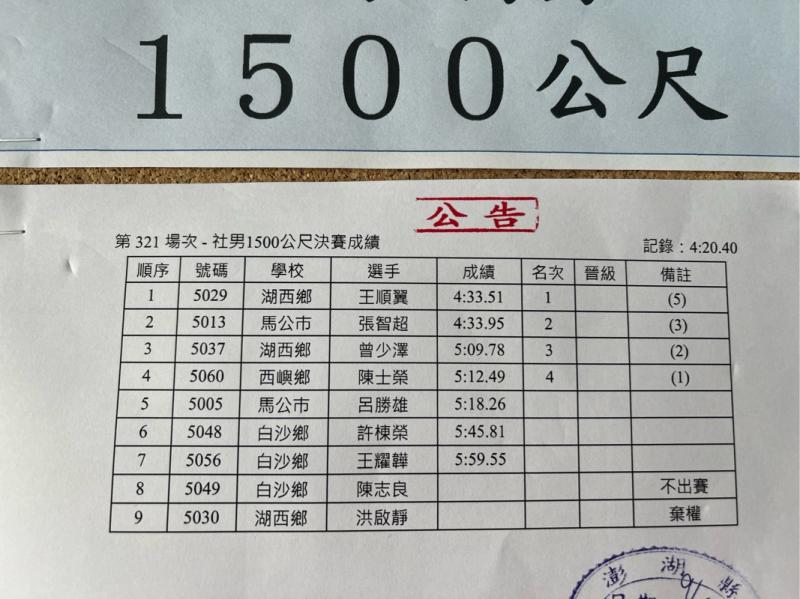 1500公尺
公告
第 321 場次 - 社男1500公尺決賽成績 記錄：4:20.40
順序 號碼 學校 選手 成績 名次 晉級 備註
1 5029 湖西鄉 王順翼 4:33.51 1 (5)
2 5013 馬公市 張智超 4:33.95 2 (3)
3 5037 湖西鄉 曾少澤 5:09.78 3 (2)
4 5060 西嶼鄉 陳士榮 5:12.49 4 (1)
5 5005 馬公市 呂勝雄 5:18.26
6 5048 白沙鄉 許棟榮 5:45.81
7 5056 白沙鄉 王耀鞾 5:59.55
8 5049 白沙鄉 陳志良 不出賽
9 5030 湖西鄉 洪啟靜 棄權
澎湖縣